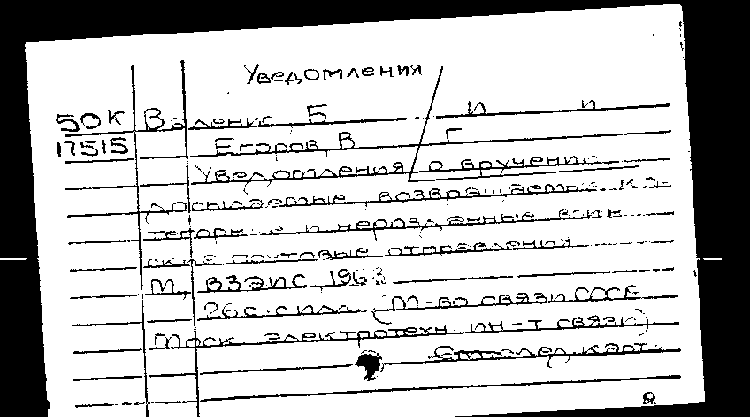 Уведомления
50К Валение, Б И и
17515 Егоров, В Г
Уведомления о вручении
досылаемые, возвращаемые, ка-
тегории и нерозданные
почтовые отправления
М., ВЗЭИС, 1963
26 с. с илл. (М-во связи СССР
Моск электротехн ин-т связи)